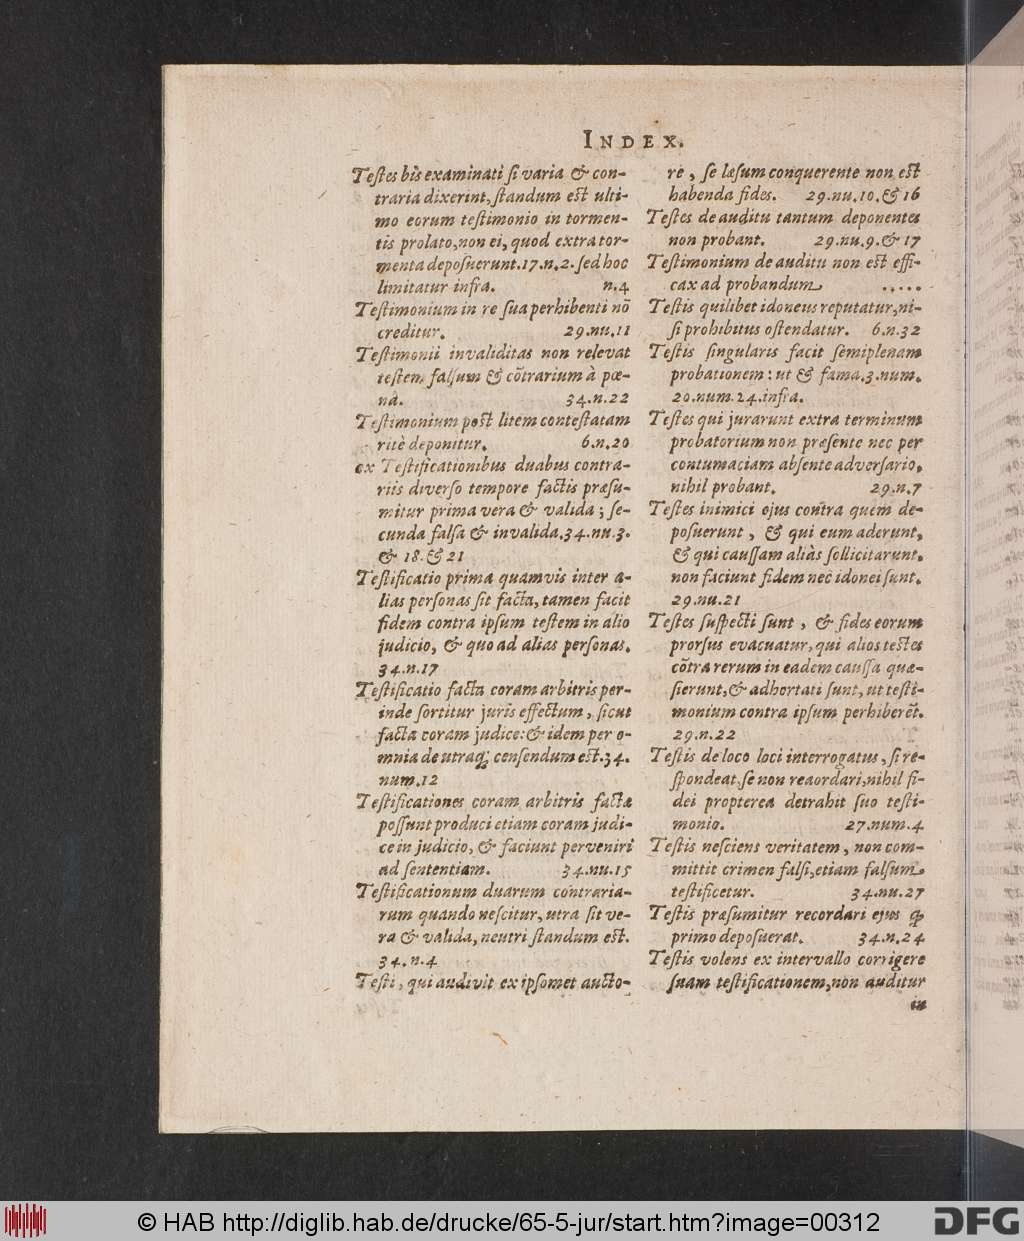 INDEX.
Testes bis examinati si varia & con-
traria dixerint, standum est ulti-
mo eorum testimonio in tormen-
tis prolato, non ei, quod extra tor-
menta deposuerunt. 17. n. 2. sed hoc
limitatur infra. n. 4
Testimonium in re sua perhibenti nō
creditur. 29. nu. 11
Testimonii invaliditas non relevat
testem falsum & cōtrarium à pœ-
nâ. 34. n. 22
Testimonium post litem contestatam
ritè deponitur. 6. n. 20
ex Testificationibus duabus contra-
riis diverso tempore factis præsu-
mitur prima vera & valida; se-
cunda falsa & invalida. 34. nu. 3.
& 18. & 21
Testificatio prima quamvis inter a-
lias personas sit facta, tamen facit
fidem contra ipsum testem in alio
judicio, & quo ad alias personas.
34. n. 17
Testificatio facta coram arbitris per-
inde sortitur juris effectum, sicut
facta coram judice: & idem per o-
mnia de utraq; censendum est. 34.
num. 12
Testificationes coram arbitris factæ
possunt produci etiam coram judi-
ce in judicio, & faciunt perveniri
ad sententiam. 34. nu. 15
Testificationum duarum contraria-
rum quando nescitur, utra sit ve-
ra & valida, neutri standum est.
34. n. 4
Testi, qui audivit ex ipsomet aucto-
re, se læsum conquerente non est
habenda fides. 29. nu. 10. & 16
Testes de auditu tantum deponentes
non probant. 29. nu. 9. & 17
Testimonium de auditu non est effi-
cax ad probandum .....
Testis quilibet idoneus reputatur, ni-
si prohibitus ostendatur. 6. n. 32
Testis singularis facit semiplenam
probationem: ut & fama. 3. num.
20. num. 24. infra.
Testes qui jurarunt extra terminum
probatorium non præsente nec per
contumaciam absente adversario,
nihil probant. 29. n. 7
Testes inimici ejus contra quem de-
posuerunt, & qui eum aderunt,
& qui caussam aliàs sollicitarunt,
non faciunt fidem nec idonei sunt.
29. nu. 21
Testes suspecti sunt, & fides eorum
prorsus evacuatur, qui alios testes
cōtra rerum in eadem caussa quæ-
sierunt, & adhortati sunt, ut testi-
monium contra ipsum perhiberēt.
29. n. 22
Testis de loco loci interrogatus, si re-
spondeat, se non reaordari, nihil fi-
dei propterea detrahit suo testi-
monio. 27. num. 4
Testis nesciens veritatem, non com-
mittit crimen falsi, etiam falsum
testificetur. 34. nu. 27
Testis præsumitur recordari ejus ꝙ
primo deposuerat. 34. n. 24
Testis volens ex intervallo corrigere
suam testificationem, non auditur
in
© HAB http://diglib.hab.de/drucke/65-5-jur/start.htm?image=00312
DFG